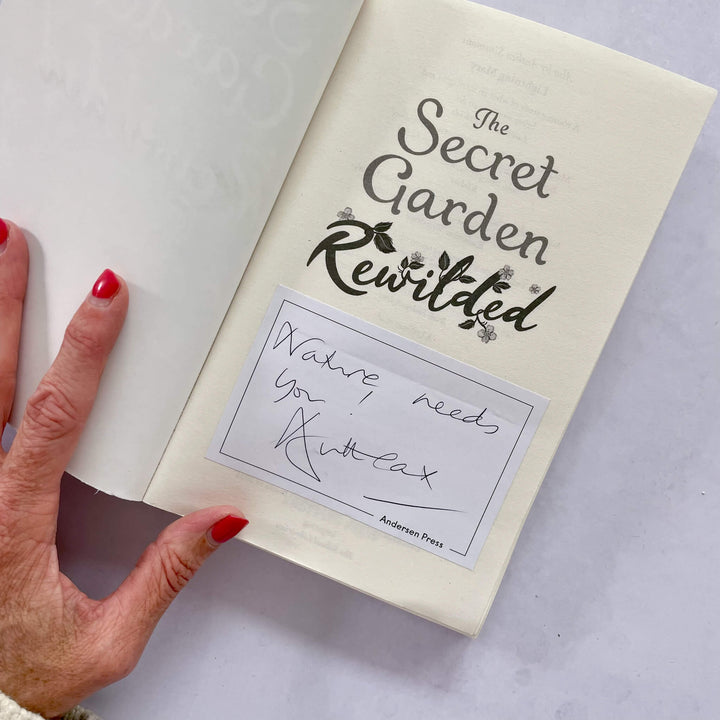 The
Secret
Garden
Rewilded
Nature, needs
you.
Andersen Press